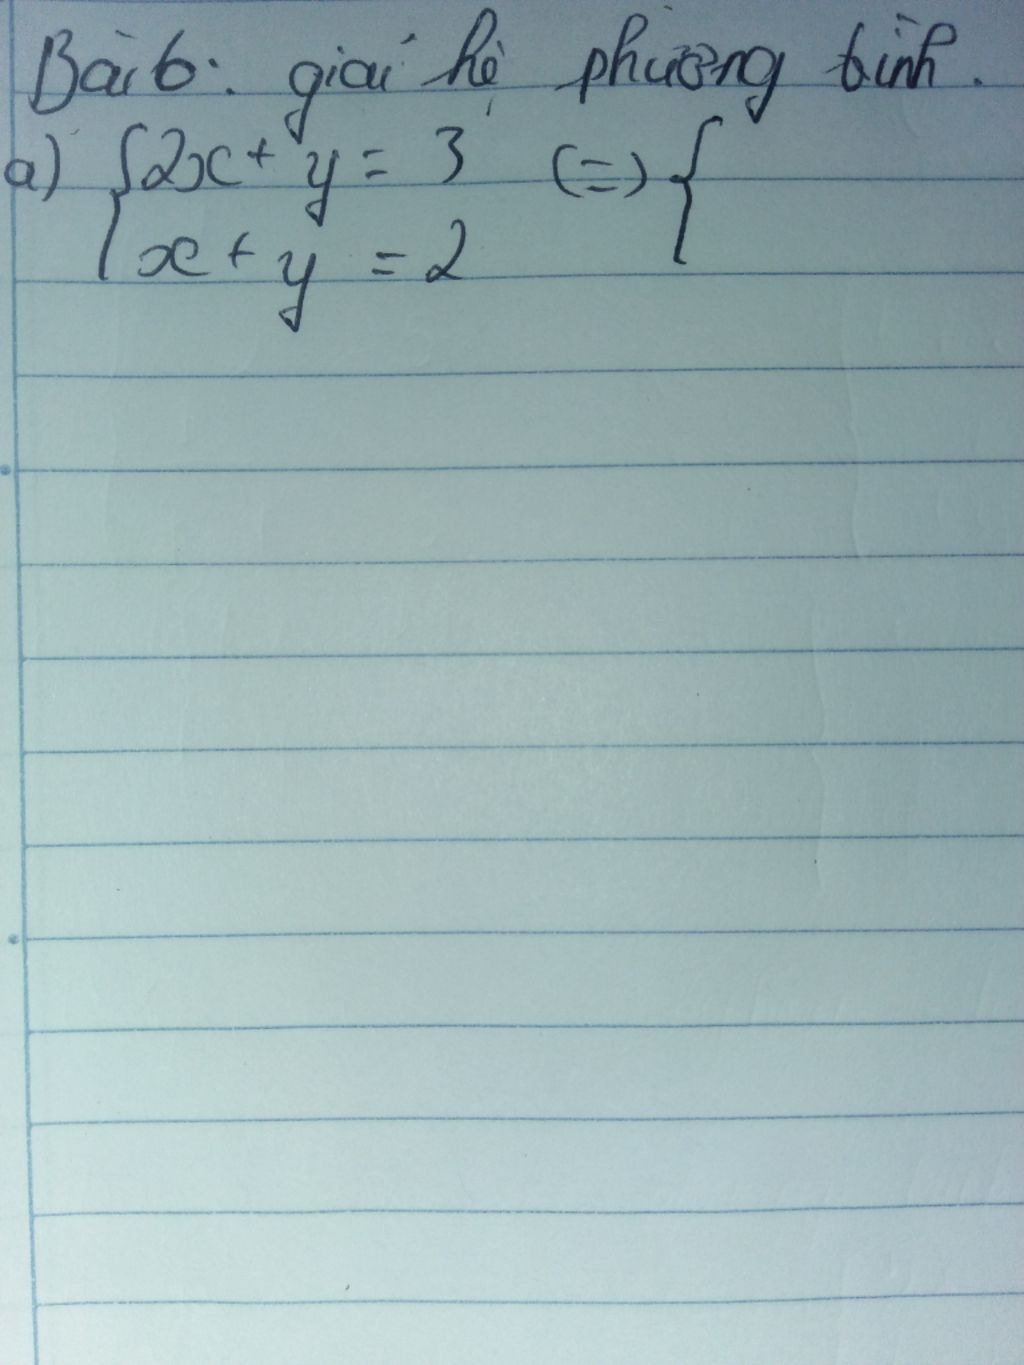 Bài 6: giải hệ phương trình.
a) {2x + y = 3 (=) {
x + y = 2